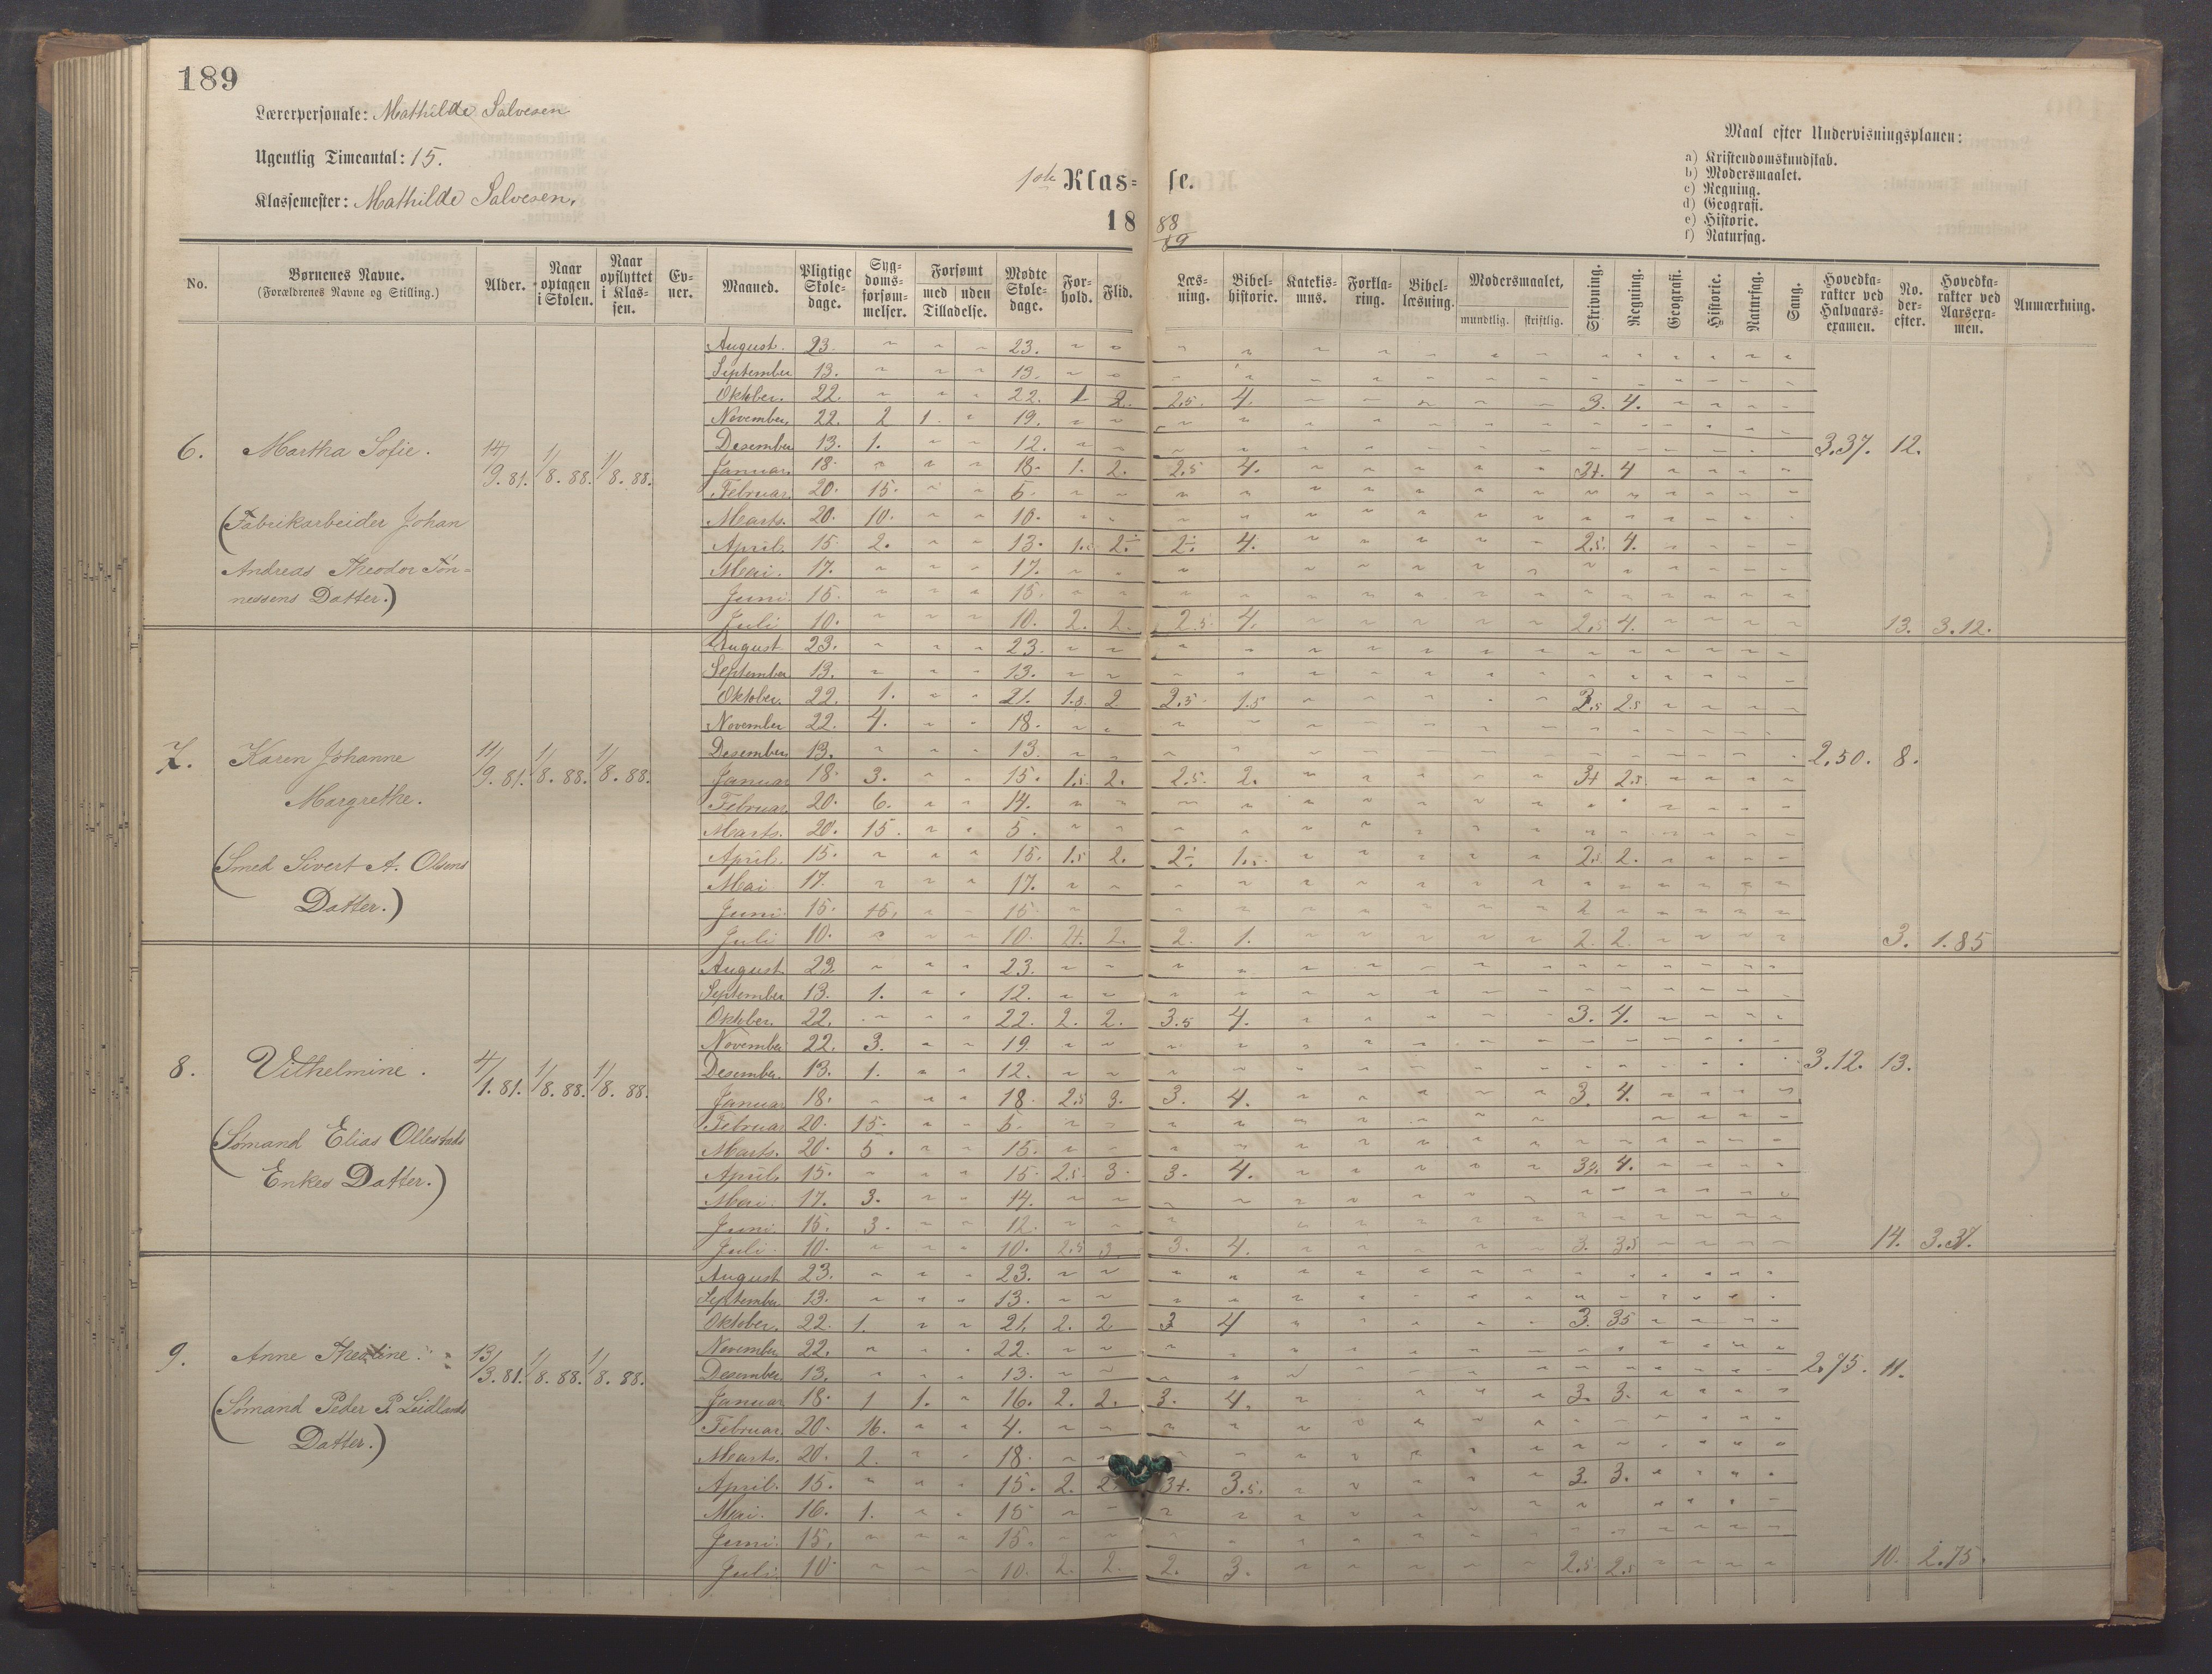 189
Lærerpersonale: Mathilde Salvesen
Ugentlig Timeantal: 15.
Klassemester: Mathilde Salvesen.
1ste Klas- se.
18 88/89
Maal efter Undervisningsplanen:
a) Kristendomskundskab.
b) Modersmaalet.
c) Regning.
d) Geografi.
e) Historie.
f) Naturfag.
No. Børnenes Navne. (Forældrenes Navne og Stilling.) Alder. Naar optagen i Skolen. Naar opflyttet i Klassen. Evner. Maaned. Pligtige Skoledage. Sygdomsforsømmelser. Forsømt med uden Tilladelse. Mødte Skoledage. Forhold. Flid. Læsning. Bibelhistorie. Katekismus. Forklaring. Bibellæsning. Modersmaalet, mundtlig. skriftlig. Skrivning. Regning. Geografi. Historie. Naturfag. Sang. Hovedkarakter ved Halvaarsexamen. No. derefter. Hovedkarakter ved Aarsexamen. Anmærkning.
6. Martha Sofie. 14/9. 81. 1/8. 88. 1/8. 88.
(Fabrikarbeider Johan
Andreas Theodor Tøn-
nessens Datter.)
August. 23. 23.
September 13. 13.
Oktober. 22. 22. 1 2. 2.5. 4. 3. 4.
November 22. 2 1. 19.
Desember 13. 1. 12. 3.37. 12.
Januar. 18. 18. 1. 2. 2.5 4. 3+. 4
Februar. 20. 15. 5.
Marts. 20. 10. 10.
April. 15. 2. 13. 1.5 2÷ 2÷ 4. 2.5. 4.
Mai. 17. 17.
Juni. 15. 15.
Juli 10. 10. 2. 2. 2.5. 4. 2.5 4. 13. 3.12.
7. Karen Johanne
Margrethe. 11/9. 81. 1/8. 88. 1/8. 88.
(Smed Sivert A. Olsens
Datter.)
August. 23. 23.
September 13. 13.
Oktober. 22. 1. 21. 1.5. 2 2.5. 1.5 2.5 2.5
November 22. 4. 18.
Desember 13. 13. 2.50. 8.
Januar 18. 3. 15. 1.5. 2. 2.5. 2. 3+ 2.5.
Februar. 20. 6. 14.
Marts. 20. 15. 5.
April. 15. 15. 1.5 2. 2÷ 1.5. 2.5 2.
Mai 17. 17.
Juni 15. 15. 15. 2
Juli 10. 10. 2+. 2. 2. 1. 2. 2. 3. 1.85
8. Vilhelmine. 4/1. 81. 1/8. 88. 1/8. 88.
(Sømand Elias Ollestads
Enkes Datter.)
August. 23. 23.
September 13. 1. 12.
Oktober. 22. 22. 2. 2. 3.5 4. 3. 4.
November 22. 3. 19
Desember. 13. 1. 12. 3.12. 13.
Januar 18. 18 2.5 3. 3. 4. 3. 4.
Februar 20. 15. 5.
Marts. 20. 5. 15.
April. 15. 15. 2.5. 3. 3. 4. 4.
Mai. 17. 3. 14.
Juni. 15. 3. 12.
Juli. 10. 10. 2.5 3. 3. 4. 3. 3.5 14. 3.37.
9. Anne 13/3. 81. 1/8. 88. 1/8. 88.
(Sømand Peder P. Leidlands
Datter.)
August 23. 23.
September 13. 13.
Oktober. 22. 1. 21. 2. 2 3 4 3. 35
November 22. 22.
Desember 13. 13. 2.75. 11.
Januar 18. 1 1. 16. 2. 2. 3. 4. 3. 3.
Februar. 20. 16. 4.
Marts. 20. 2. 18.
April. 15. 15. 2. 3+. 3.5. 3. 3.
Mai. 16. 1. 15
Juni. 15. 15.
Juli. 10 10. 2. 2. 2. 3. 2.5 2.5 10. 2.75.